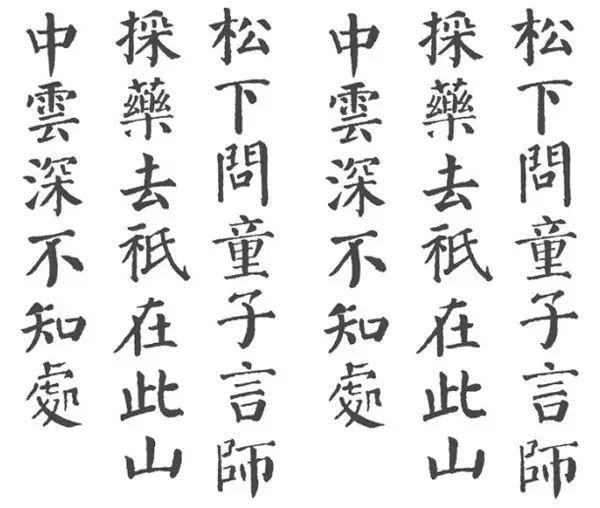 松下問童子言師
採藥去祇在此山
中雲深不知處
松下問童子言師
採藥去祇在此山
中雲深不知處